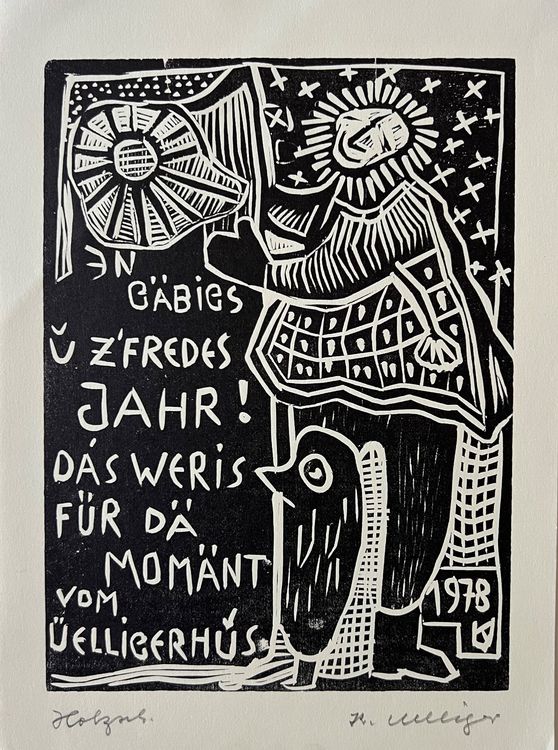 EN
GÄBIGS
Ŭ Z'FREDES
JAHR!
DÁS WERIS
FÜR DÄ
MOMÄNT
VOM
ÜELLIGERHŬS
1978
Holzsch.
K. Uelliger